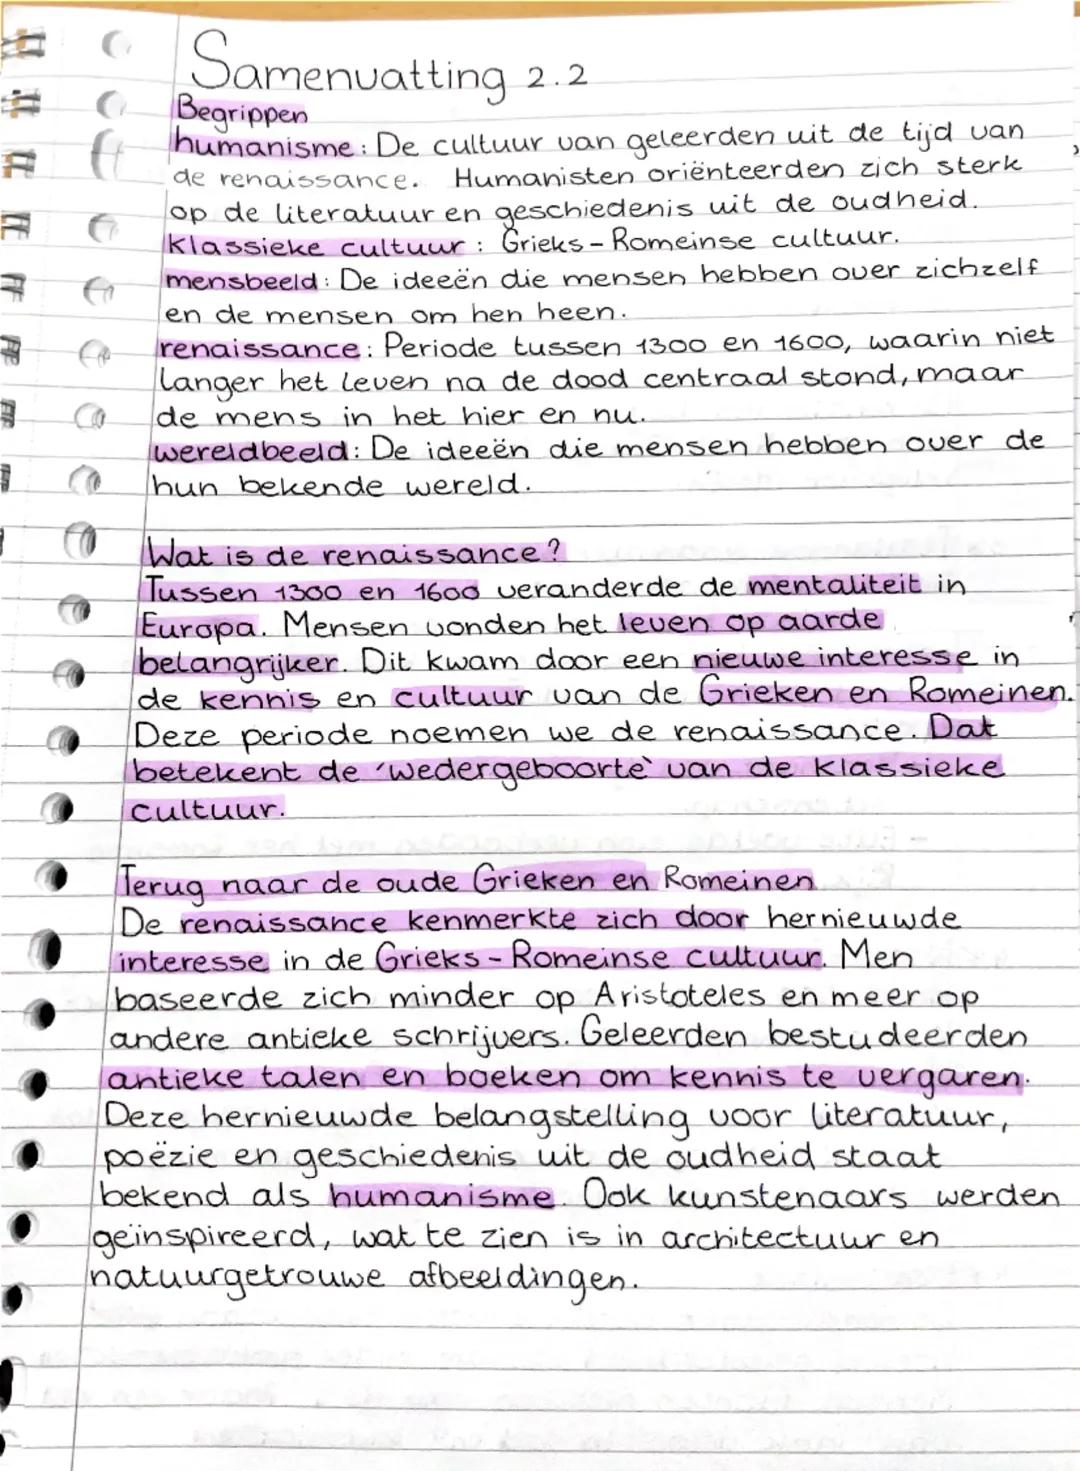 Samenvatting 2.2
Begrippen
humanisme: De cultuur van geleerden uit de tijd van
de renaissance. Humanisten oriënteerden zich sterk
op de literatuur en geschiedenis uit de oudheid.
klassieke cultuur: Grieks-Romeinse cultuur.
mensbeeld: De ideeën die mensen hebben over zichzelf
en de mensen om hen heen.
renaissance: Periode tussen 1300 en 1600, waarin niet
langer het leven na de dood centraal stond, maar
de mens in het hier en nu.
wereldbeeld: De ideeën die mensen hebben over de
hun bekende wereld.
Wat is de renaissance?
Tussen 1300 en 1600 veranderde de mentaliteit in
Europa. Mensen vonden het leven op aarde
belangrijker. Dit kwam door een nieuwe interesse in
de kennis en cultuur van de Grieken en Romeinen.
Deze periode noemen we de renaissance. Dat
betekent de 'wedergeboorte' van de klassieke
cultuur.
Terug naar de oude Grieken en Romeinen
De renaissance kenmerkte zich door hernieuwde
interesse in de Grieks-Romeinse cultuur. Men
baseerde zich minder op Aristoteles en meer op
andere antieke schrijvers. Geleerden bestudeerden
antieke talen en boeken om kennis te vergaren.
Deze hernieuwde belangstelling voor literatuur,
poëzie en geschiedenis uit de oudheid staat
bekend als humanisme. Ook kunstenaars werden
geïnspireerd, wat te zien is in architectuur en
natuurgetrouwe afbeeldingen.